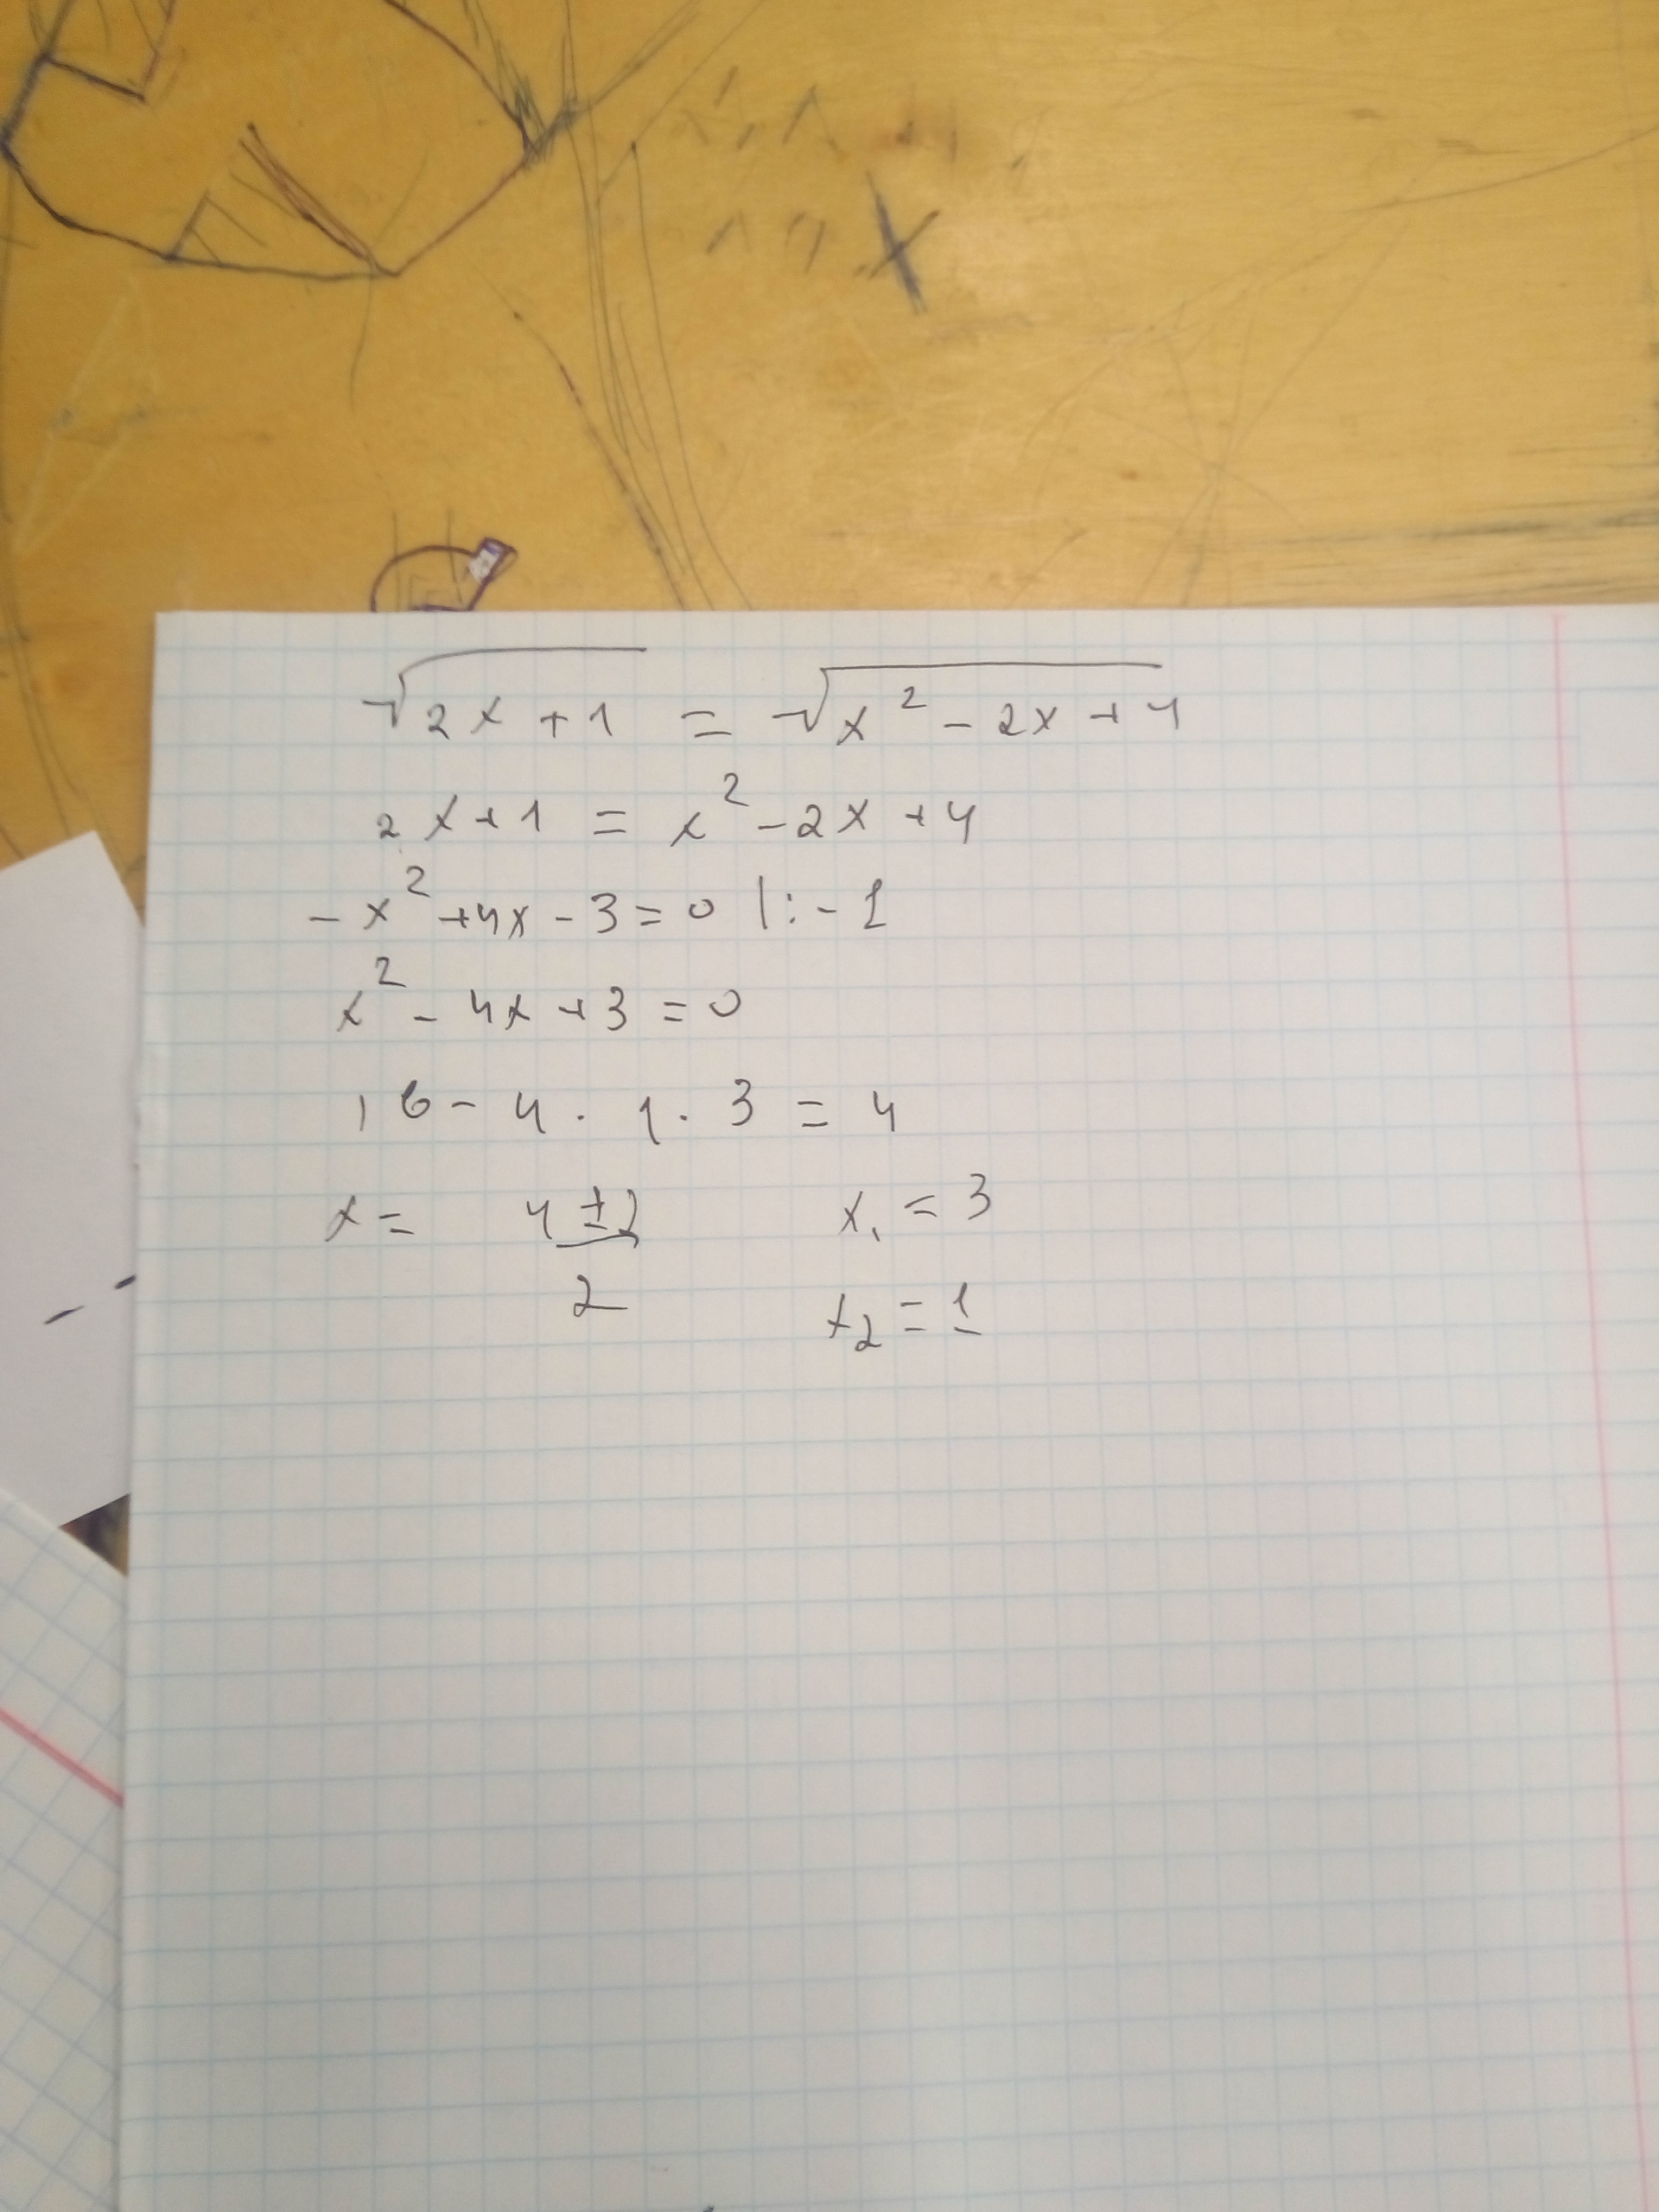 √2x+1 = √x² - 2x + 4
2x+1 = x² - 2x + 4
-x² + 4x - 3 = 0 |: -1
x² - 4x + 3 = 0
16 - 4 · 1 · 3 = 4
x = 4 ± 2 / 2
x₁ = 3
x₂ = 1